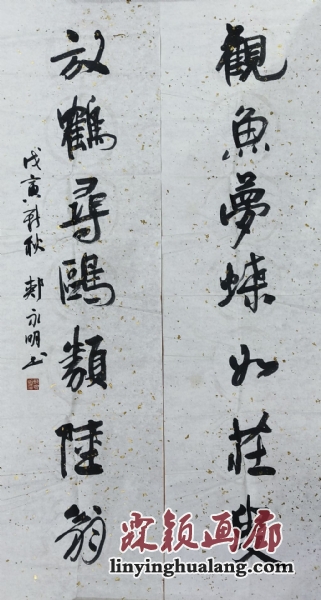 觀魚夢蝶如莊叟
放鶴尋鷗類陸翁
戊寅新秋 郏永明书
霖颖画廊
linyinghualang.com